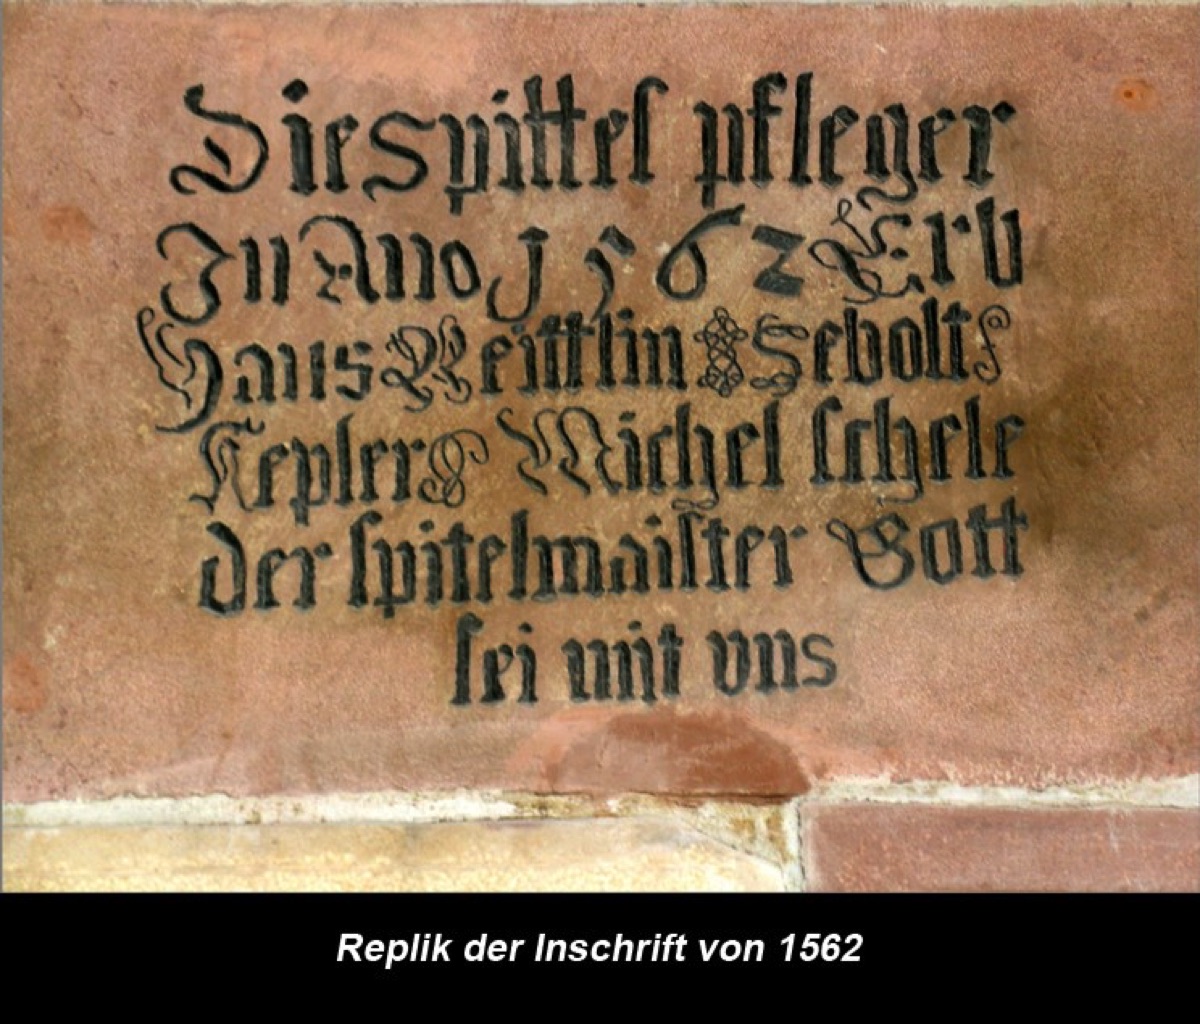 Die Spittel pfleger
In Ano 1562 Erb
Hans Reittlin Sebolt
Kepler Michel schele
der spitelmaister Gott
sei mit uns
Replik der Inschrift von 1562